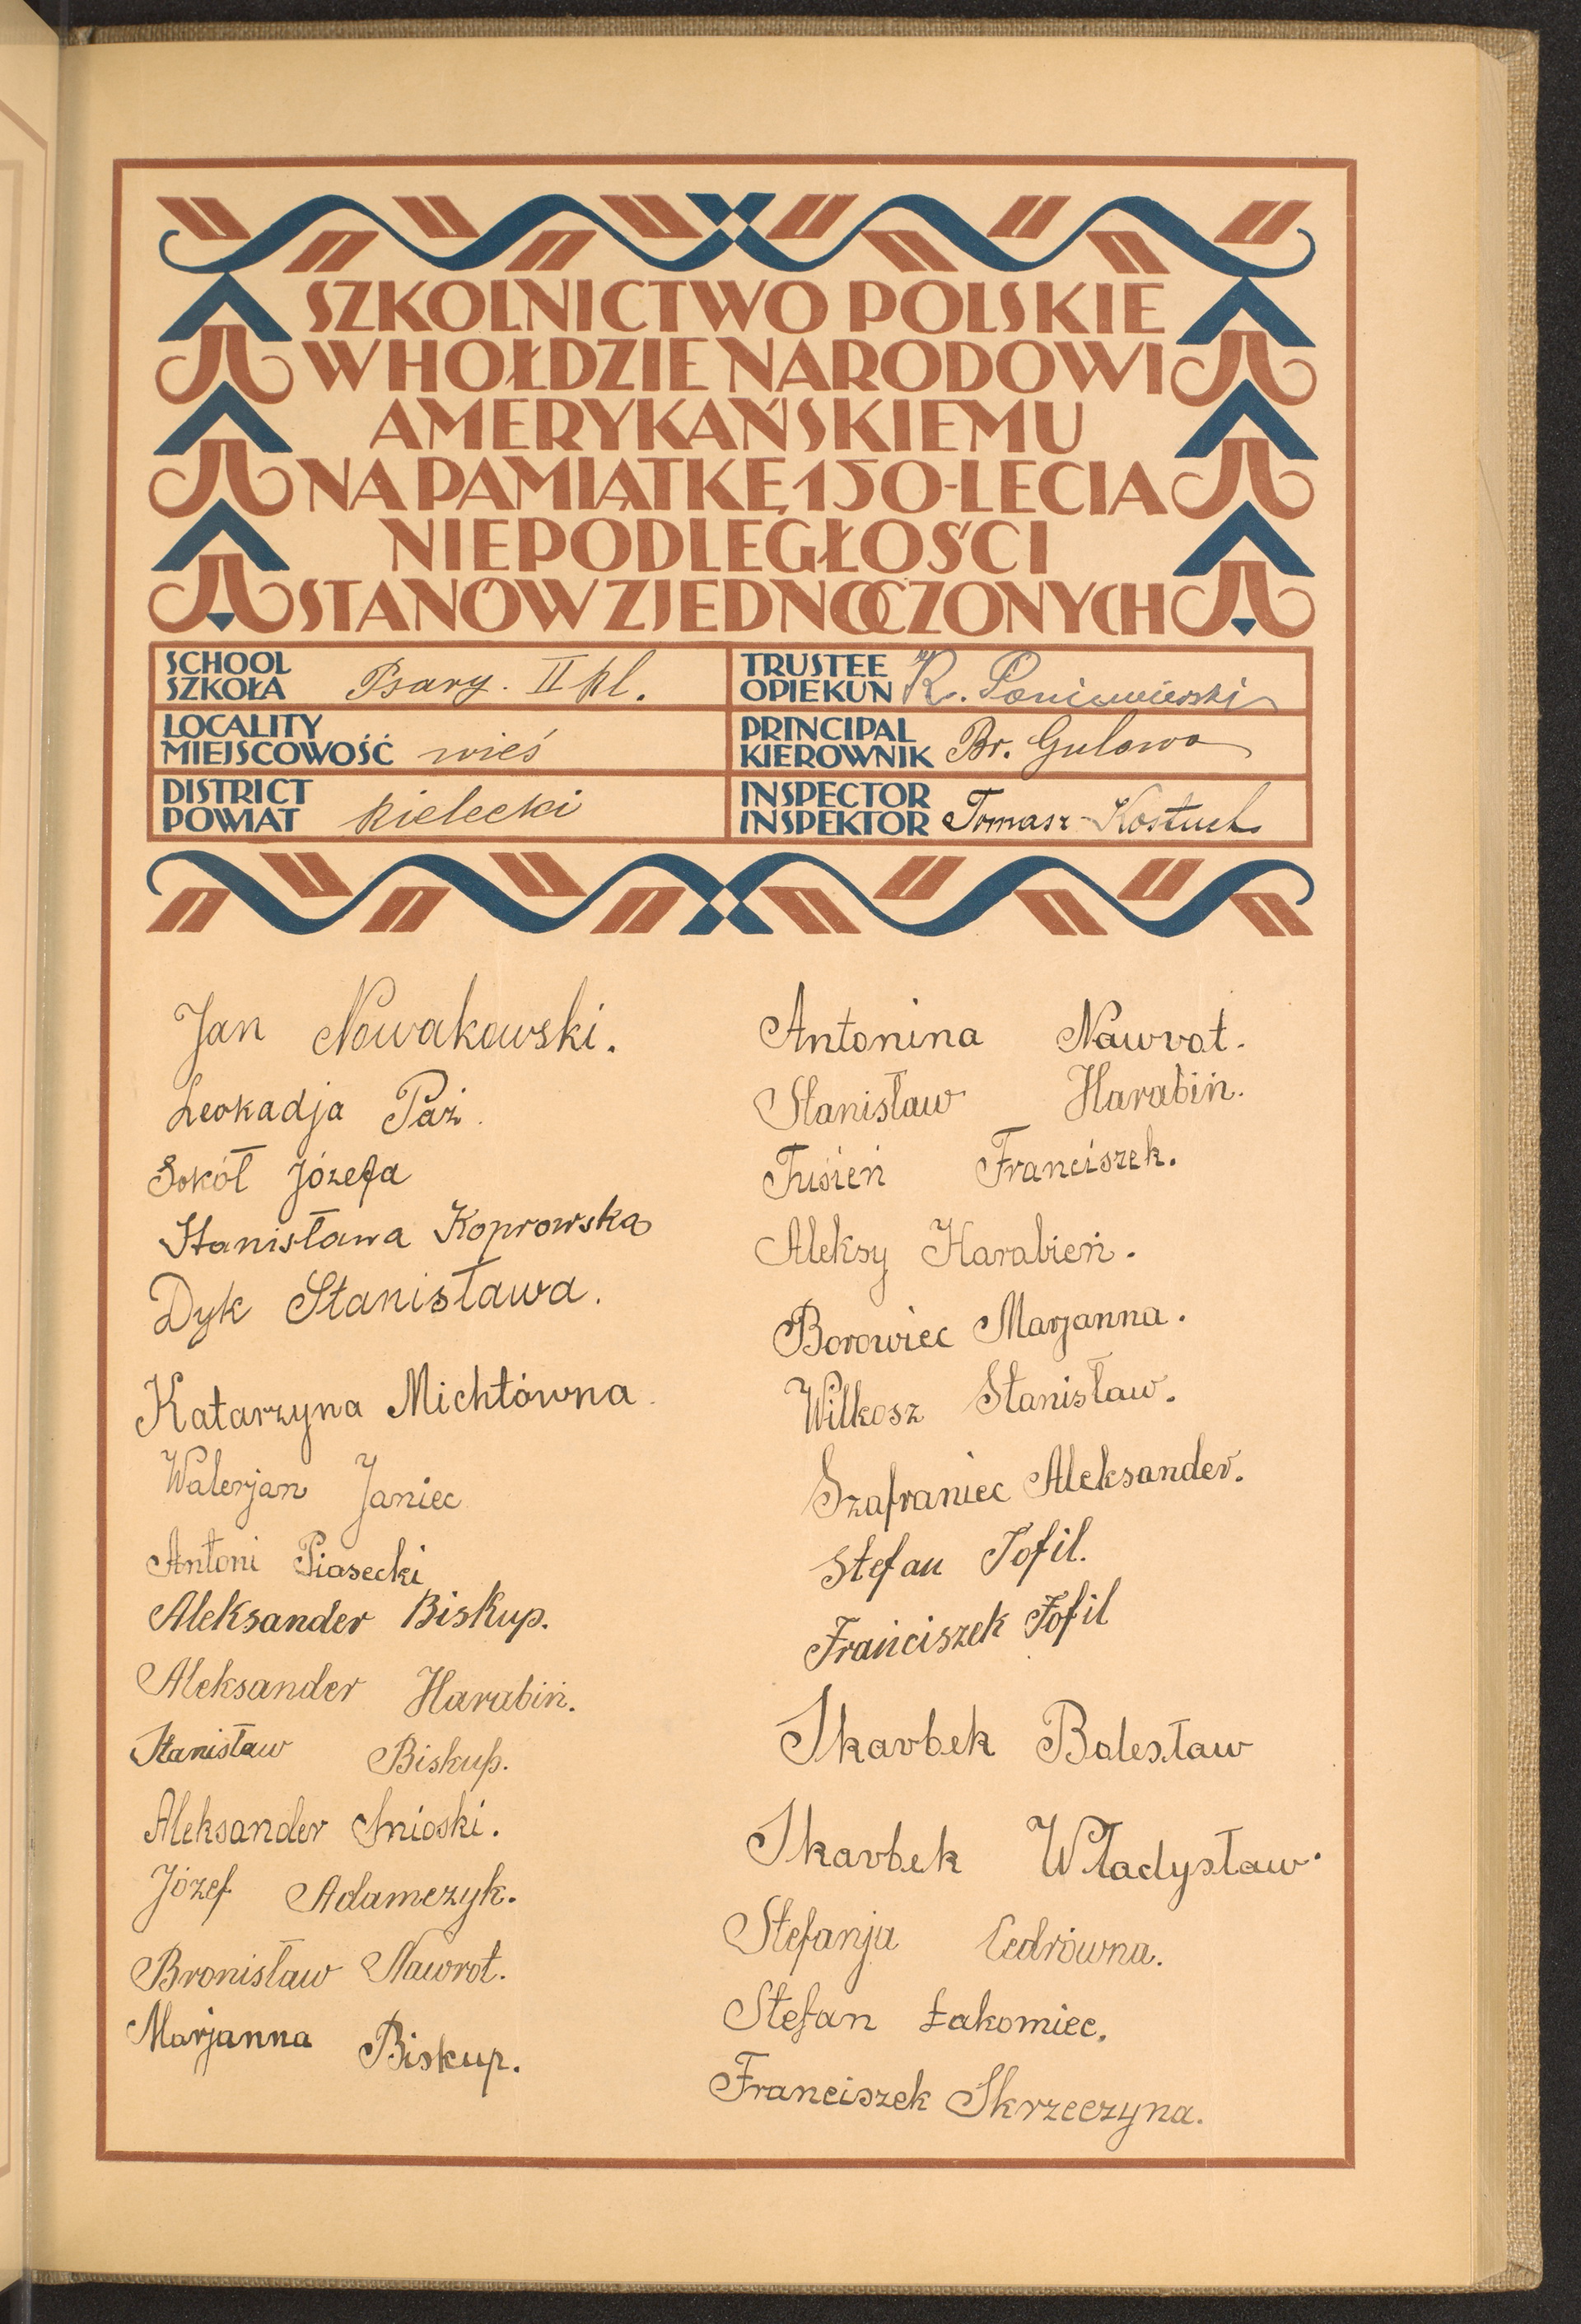 SZKOLNICTWO POLSKIE
W HOŁDZIE NARODOWI
AMERYKAŃSKIEMU
NA PAMIĄTKĘ 150-LECIA
NIEPODLEGŁOŚCI
STANÓW ZJEDNOCZONYCH
SCHOOL
SZKOŁA Psary. II kl.
TRUSTEE
OPIEKUN R. Poniewierski
LOCALITY
MIEJSCOWOŚĆ wieś
PRINCIPAL
KIEROWNIK Br. Gulowa
DISTRICT
POWIAT kielecki
INSPECTOR
INSPEKTOR Tomasz Kostuch
Jan Nowakowski.
Leokadja Paź.
Sokół Józefa
Stanisława Koprowska
Dyk Stanisława.
Katarzyna Michtówna.
Walerjan Janiec
Antoni Piasecki
Aleksander Biskup.
Aleksander Harabiń.
Stanisław Biskup.
Aleksander Snioski.
Józef Adamczyk.
Bronisław Nawrot.
Marjanna Biskup.
Antonina Nawrot.
Stanisław Harabiń.
Tusień Franciszek.
Aleksy Harabień.
Borowiec Marjanna.
Wilkosz Stanisław.
Szafraniec Aleksander.
Stefan Tofil.
Franciszek Tofil
Skarbek Bolesław
Skarbek Władysław.
Stefanja Cedrówna.
Stefan Łakomiec.
Franciszek Skrzeczyna.